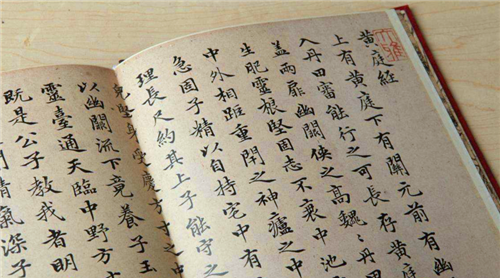 黄庭經
上有黄庭下有關元前有幽
入丹田審能行之可長存黄庭
盖兩扉幽關俠之高魏〻丹
生肥靈根堅固志不衰中池
中外相距重閉之神廬之中
急固子精以自持宅中有
理長尺約其上子能守之
堅身受慶方
以幽關流下竟養子玉
靈臺通天臨中野方
既是公子教我者明
清氣深子